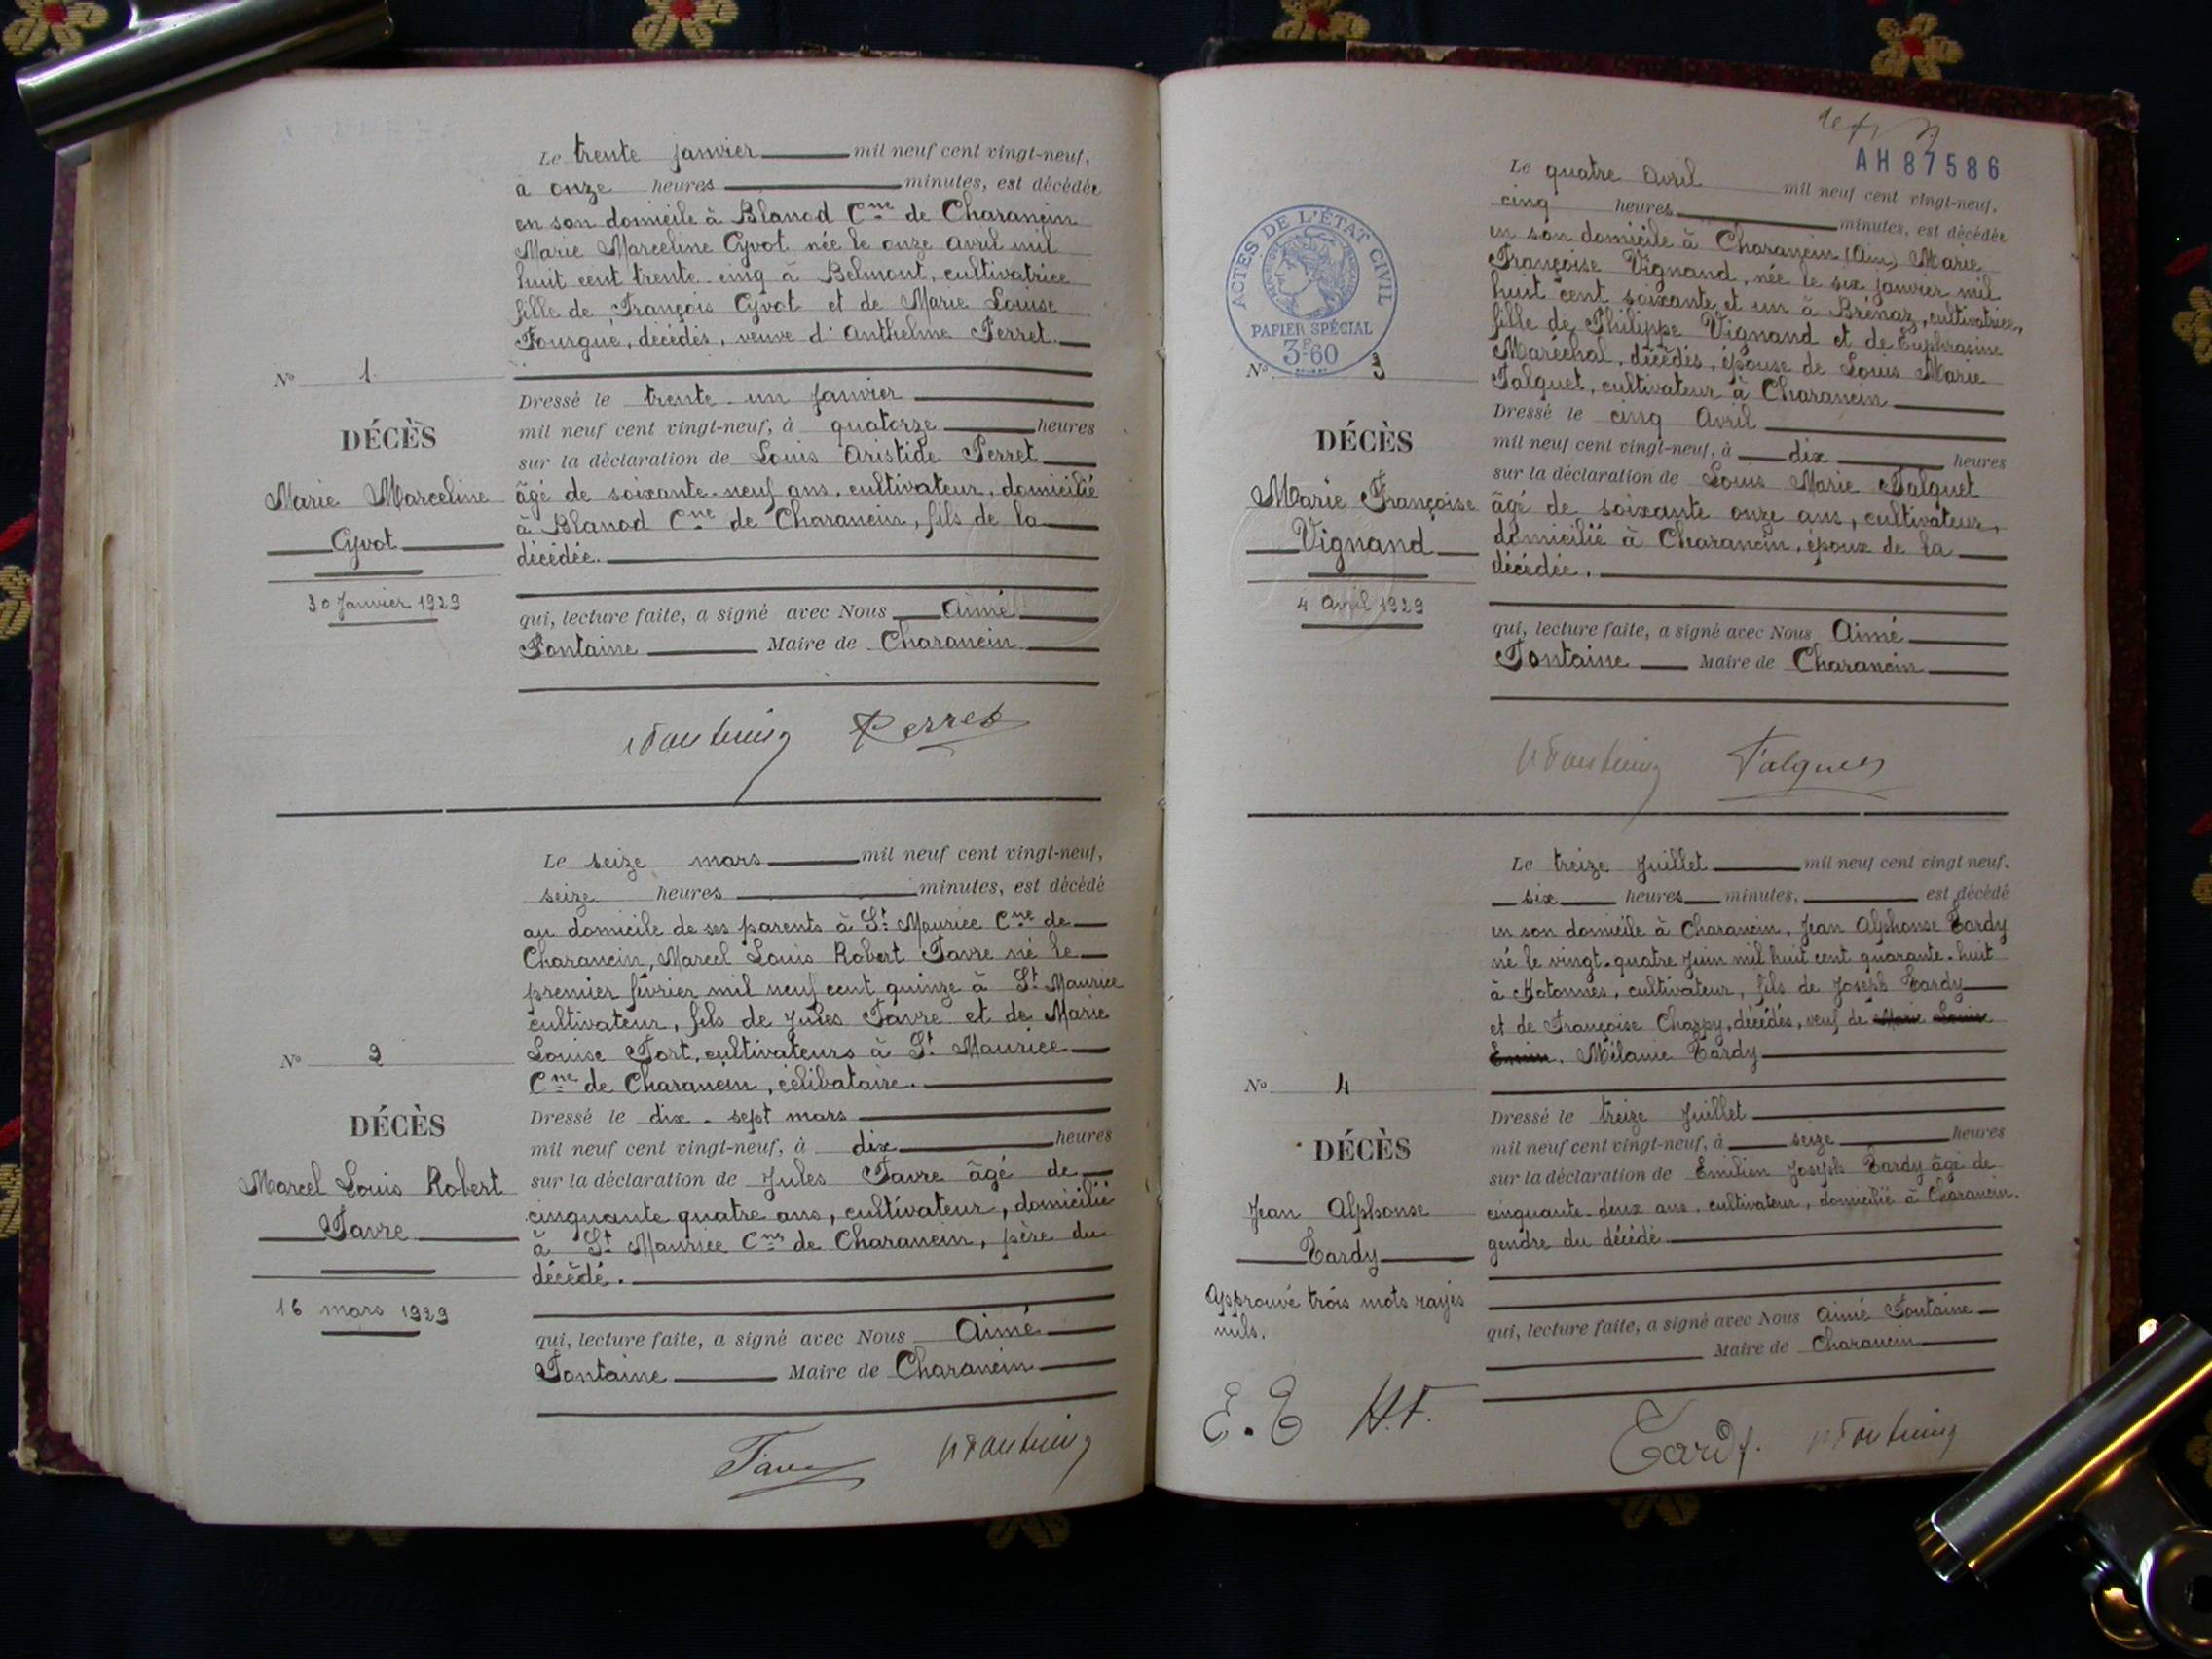 Le trente janvier mil neuf cent vingt-neuf,
à onze heures minutes, est décédée
en son domicile à Blanod Cne de Charancin
Marie Marceline Cyvot née le onze Avril mil
huit cent trente-cinq à Belmont, cultivatrice
fille de François Cyvot et de Marie Louise
Fourgue, décédés, veuve d'Anthelme Perret.
N° 1
Dressé le trente-un Janvier
DÉCÈS
mil neuf cent vingt-neuf, à quatorze heures
sur la déclaration de Louis Aristide Perret
Marie Marceline
âgé de soixante-neuf ans, cultivateur, domicilié
à Blanod Cne de Charancin, fils de la
Cyvot
décédée.
30 Janvier 1929
qui, lecture faite, a signé avec Nous Aimé
Fontaine Maire de Charancin
Perret
Le seize mars mil neuf cent vingt-neuf,
seize heures minutes, est décédé
au domicile de ses parents à St Maurice Cne de
Charancin, Marcel Louis Robert Favre né le
premier février mil neuf cent quinze à St Maurice
cultivateur, fils de Jules Favre et de Marie
Louise Fort, cultivateurs à St Maurice
N° 2
Cne de Charancin, célibataire.
Dressé le dix-sept mars
DÉCÈS
mil neuf cent vingt-neuf, à dix heures
sur la déclaration de Jules Favre âgé de
Marcel Louis Robert
cinquante quatre ans, cultivateur, domicilié
Favre
à St Maurice Cne de Charancin, père du
décédé.
16 mars 1929
qui, lecture faite, a signé avec Nous Aimé
Fontaine Maire de Charancin
Favre
AH87586
Le quatre Avril mil neuf cent vingt-neuf,
cinq heures minutes, est décédée
en son domicile à Charancin (Ain) Marie
Françoise Vignand, née le six janvier mil
huit cent soixante et un à Brénaz, cultivatrice,
fille de Philippe Vignand et de Euphrasine
Maréchal, décédés, épouse de Louis Marie
Falquet, cultivateur à Charancin
ACTES DE L'ÉTAT CIVIL
RÉPUBLIQUE FRANÇAISE
PAPIER SPÉCIAL
3F60
N° 3
Dressé le cinq Avril
DÉCÈS
mil neuf cent vingt-neuf, à dix heures
sur la déclaration de Louis Marie Falquet
Marie Françoise
âgé de soixante onze ans, cultivateur,
Vignand
domicilié à Charancin, époux de la
décédée.
4 Avril 1929
qui, lecture faite, a signé avec Nous Aimé
Fontaine Maire de Charancin
Falquet
Le treize Juillet mil neuf cent vingt neuf.
six heures minutes, est décédé
en son domicile à Charancin, Jean Alphonse Tardy
né le vingt-quatre Juin mil huit cent quarante-huit
à Hotonnes, cultivateur, fils de Joseph Tardy
et de Françoise Charpy, décédés, veuf de Marie Louise
Emin. Mélanie Tardy
N° 4
Dressé le treize Juillet
DÉCÈS
mil neuf cent vingt-neuf, à seize heures
sur la déclaration de Emilien Joseph Tardy âgé de
Jean Alphonse
cinquante-deux ans, cultivateur, domicilié à Charancin.
Tardy
gendre du décédé.
Approuvé trois mots rayés
nuls.
qui, lecture faite, a signé avec Nous Aimé Fontaine
Maire de Charancin
E.T
Tardy.